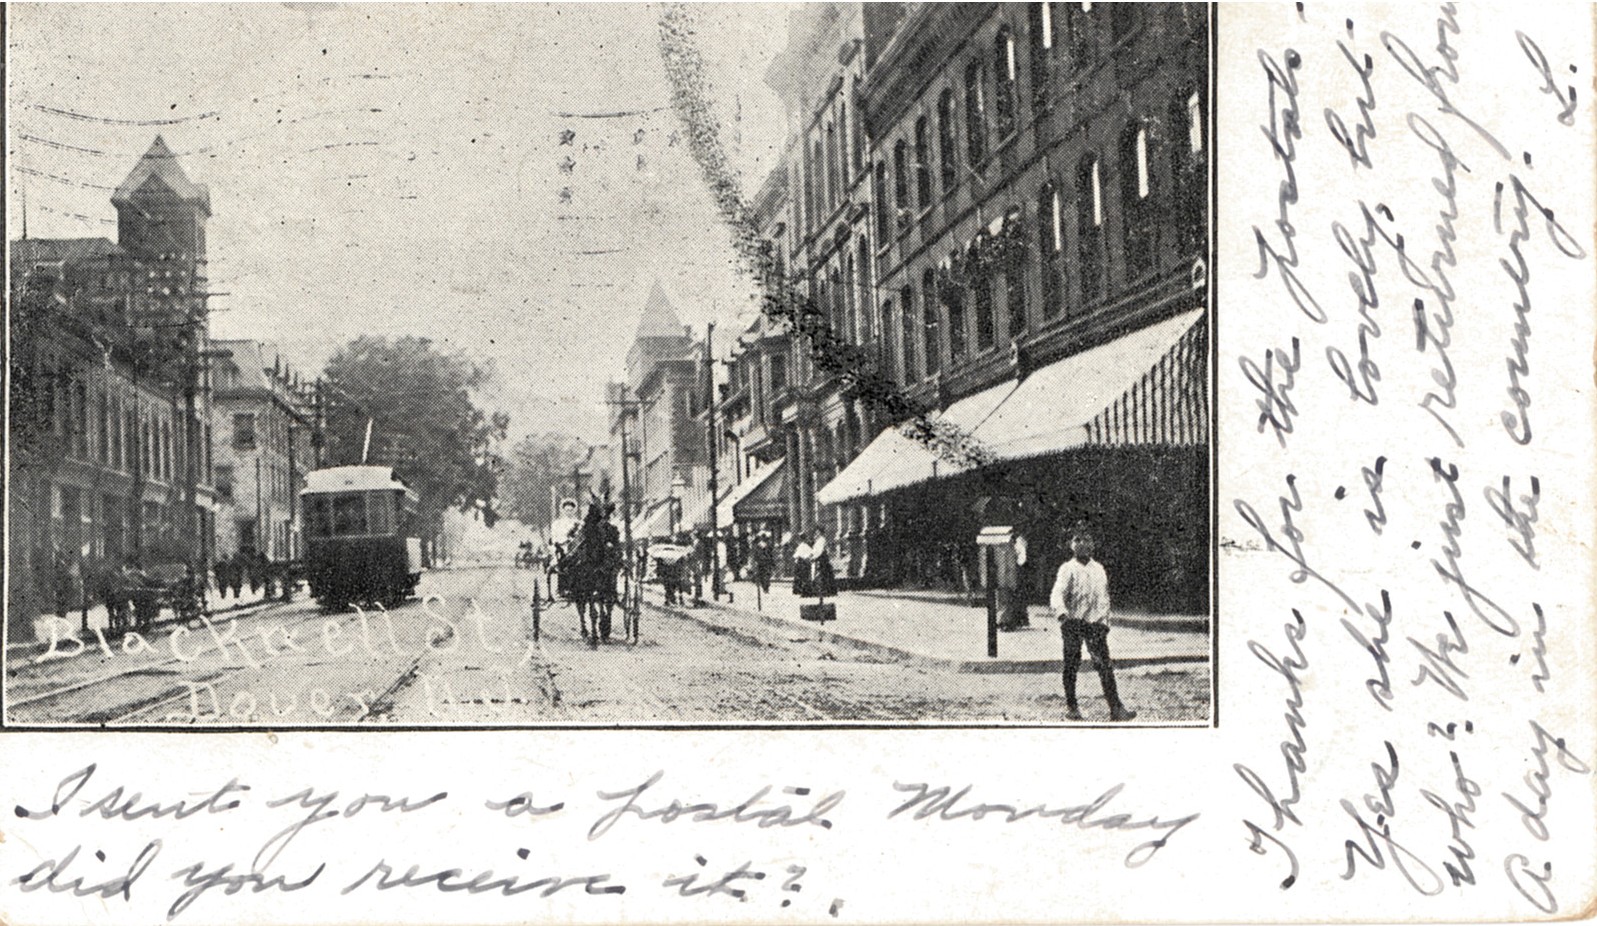 Blackwell St,
Dover, N.J.
I sent you a postal Monday
did you receive it?.
Thanks for the postals -
Yes she is lovely, but -
who? We just returned from
a day in the country. L.